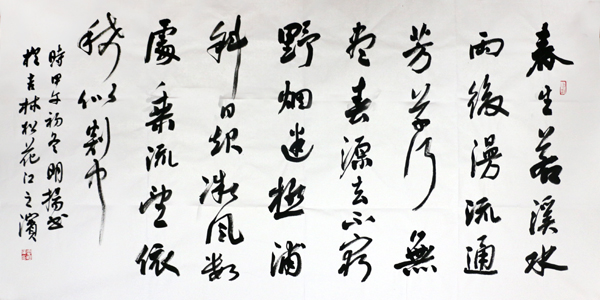 春生若溪水
雨後漫流通
芳草行無
尽春源去不窮
野烟迷極浦
斜日起微风数
處乘流望依
稀似剡中
時甲午初冬明揚书
於吉林松花江之濱